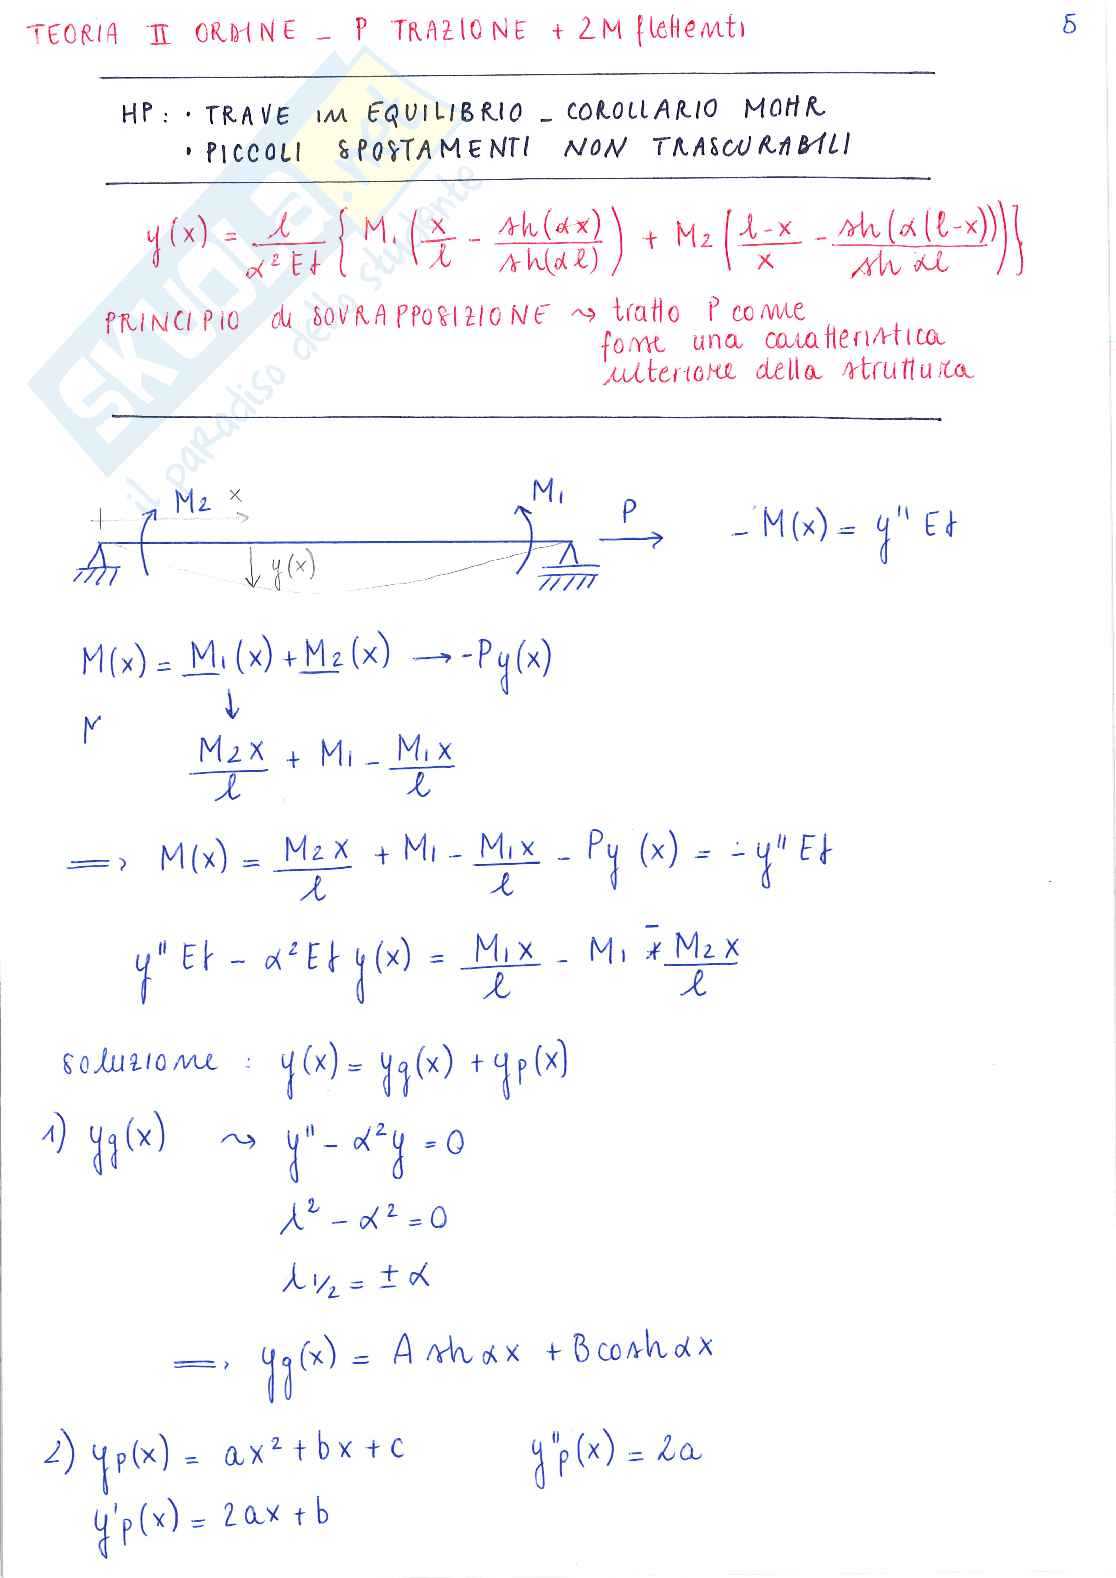 TEORIA II ORDINE - P TRAZIONE + 2M flettenti
5
HP: • TRAVE in EQUILIBRIO - COROLLARIO MOHR
• PICCOLI SPOSTAMENTI NON TRASCURABILI
y(x) = l/α²EJ { M₁ (x/l - sh(αx)/sh(αl)) + M₂ (l-x/x - sh(α(l-x))/sh αl)}
PRINCIPIO di SOVRAPPOSIZIONE ⇝ tratto P come
fosse una caratteristica
ulteriore della struttura
SKUOLA.net
il paradiso dello studente
M₂ x M₁ P
y(x)
- M(x) = y'' EJ
M(x) = M₁(x) + M₂(x) → -Py(x)
↓
M₂x/l + M₁ - M₁x/l
⇒ M(x) = M₂x/l + M₁ - M₁x/l - Py(x) = -y'' EJ
y'' EJ - α²EJ y(x) = M₁x/l - M₁ - M₂x/l
soluzione : y(x) = yg(x) + yp(x)
1) yg(x) ⇝ y'' - α²y = 0
λ² - α² = 0
λ1/2 = ± α
⇒ yg(x) = A sh αx + B cosh αx
2) yp(x) = ax² + bx + c y''p(x) = 2a
y'p(x) = 2ax + b